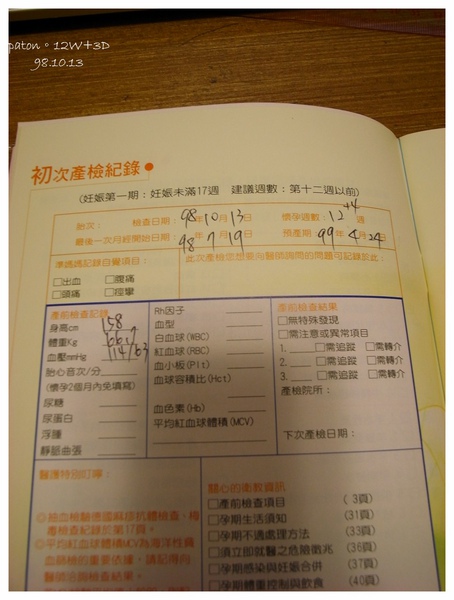 paton。12W+3D
98.10.13
初次產檢紀錄●
(妊娠第一期：妊娠未滿17週 建議週數：第十二週以前)
胎次： 檢查日期：98年10月13日 懷孕週數：12+4週
最後一次月經開始日期：98年7月19日 預產期：99年4月24日
準媽媽記錄自覺項目：
□出血 □腹痛
□頭痛 □痙攣
此次產檢您想要向醫師詢問的問題可記錄於此：
產前檢查記錄
身高cm 158
體重Kg 66.7
血壓mmHg 114/63
胎心音次/分
(懷孕2個月內免填寫)
尿糖
尿蛋白
浮腫
靜脈曲張
Rh因子
血型
白血球(WBC)
紅血球(RBC)
血小板(Plt)
血球容積比(Hct)
血色素(Hb)
平均紅血球體積(MCV)
產前檢查結果
□無特殊發現
□需注意或異常項目
1. □需追蹤 □需轉介
2. □需追蹤 □需轉介
3. □需追蹤 □需轉介
產檢院所：
下次產檢日期：
醫護特別叮嚀：
◎抽血檢驗德國麻疹抗體檢查，檢
專檢查紀錄於第17頁。
◎平均紅血球體積MCV為海洋性貧
血篩檢的重要依據，請記得向
醫師洽詢檢查結果。
關心的衛教資訊
□產前檢查項目 (3頁)
□孕期生活須知 (31頁)
□孕期不適處理方法 (33頁)
□須立即就醫之危險徵兆 (36頁)
□孕期感染與妊娠合併 (37頁)
□孕期體重控制與飲食 (40頁)